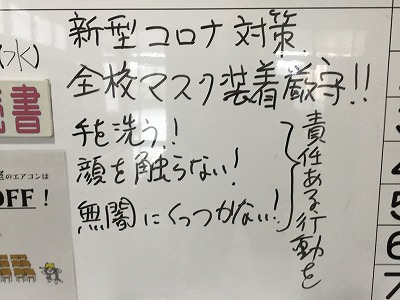 新型コロナ対策
全校マスク装着厳守!!
手を洗う!
顔を触らない!
無闇にくっつかない!
責任ある行動を
(水)
書
のエアコンは
OFF!
3
4
5
6
7